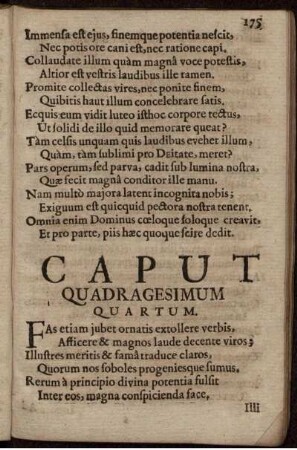 175
Immensa est ejus, finemque potentia nescit,
Nec potis ore cani est, nec ratione capi.
Collaudate illum quàm magnâ voce potestis,
Altior est vestris laudibus ille tamen.
Promite collectas vires, nec ponite finem,
Quibitis haut illum concelebrare satis.
Ecquis eum vidit luteo isthoc corpore tectus,
Ut solidi de illo quid memorare queat?
Tàm celsis unquam quis laudibus evehet illum,
Quàm, tàm sublimi pro Deitate, meret?
Pars operum, sed parva, cadit sub lumina nostra,
Quæ fecit magnâ conditor ille manu.
Nam multò majora latent incognita nobis;
Exiguum est quicquid pectora nostra tenent.
Omnia enim Dominus cœloque soloque creavit,
Et pro parte, piis hæc quoque scire dedit.
CAPUT
QUADRAGESIMUM
QUARTUM.
FAs etiam jubet ornatis extollere verbis,
Afficere & magnos laude decente viros;
Illustres meritis & famâ traduce claros,
Quorum nos soboles progeniesque sumus.
Rerum à principio divina potentia fulsit
Inter eos, magna conspicienda face,
Iiii